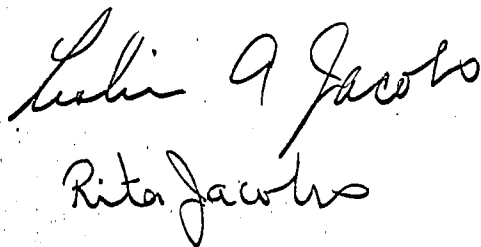 Leslie A Jacobs
Rita Jacobs